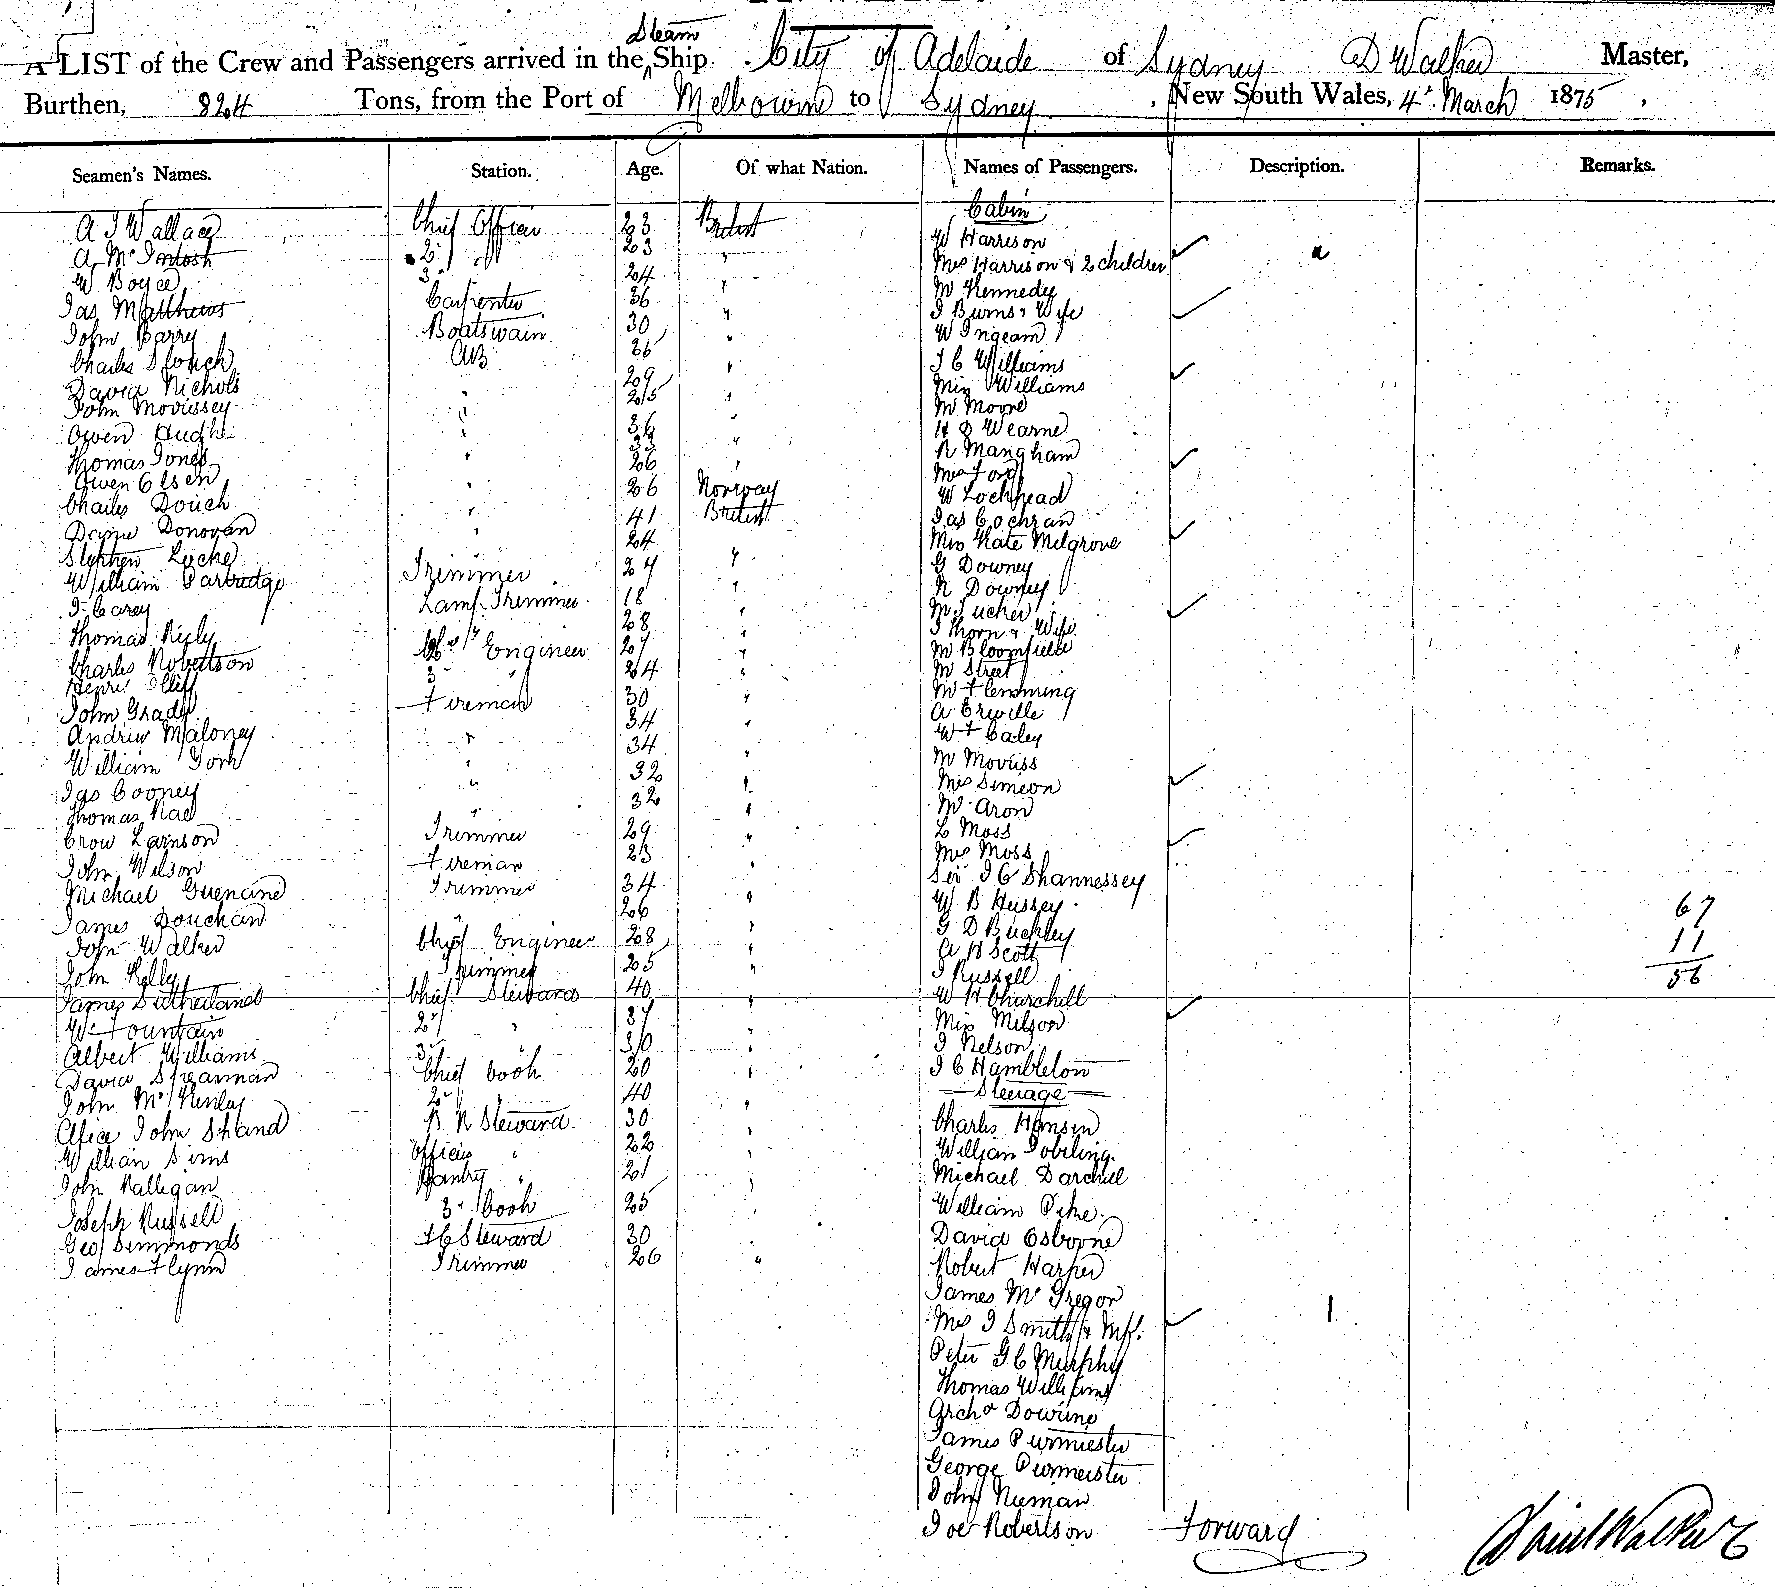 A LIST of the Crew and Passengers arrived in the Steam Ship City of Adelaide of Sydney D Walker Master,
Burthen, 824 Tons, from the Port of Melbourne to Sydney, New South Wales, 4th March 1875,
Seamen's Names. Station. Age. Of what Nation. Names of Passengers. Description. Remarks.
A J Wallace Chief Officer 23 British
A McIntosh 2 " 23 "
W Boyce 3 24 "
Jas Matthews Carpenter 36 "
John Barry Boatswain 30 "
Charles AB 36 "
David Nichols " 29 "
John " 25 "
Owen Hugh " 36 "
Thomas Jones " 33 "
Owen Olsen " 26 Norway
Charles Douch " 26 British
Donovan " 41 "
Stephen Locke " 24 "
William Partridge Trimmer 24 "
J Carey Lamp Trimmer 18 "
Thomas 28 "
Charles Robertson Engineer 27 "
Henry 3 " 24 "
John Grady Fireman 30 "
Andrew Maloney " 34 "
William York " 34 "
Jas Cooney " 32 "
Thomas Rae " 32 "
Trimmer 29 "
John Wilson Fireman 23 "
Michael Trimmer 34 "
James " 26 "
John Walker Chief Engineer 28 "
John Kelly Trimmer 25 "
James Sutherland Chief Steward 40 "
W Fountain 2 " 37 "
Albert Williams 3 " 30 "
David Spearman Chief Cook 20 "
John 2 " 40 "
John Shand B R Steward 30 "
William Sims Officers " 22 "
John Halligan Pantry " 21 "
Joseph Russell 3 Cook 25 "
Geo Simmonds F C Steward 30 "
James Flynn Trimmer 26 "
Cabin
W Harrison
Mrs Harrison & 2 children
Mr Kennedy
J Burns & Wife
W Ingeam
J C Williams
Miss Williams
Mr Moore
H J Wearne
R Mangham
Mrs Ford
W Lochhead
Jas Cochran
Miss Kate Melgrove
G Downey
R Downey
Mr Tucker
J Thorn & Wife
Mr Bloomfield
Mr Street
Mr Flemming
A Erville
W F Caley
Mr
Mrs Simeon
Mr Aron
L Moss
Mrs Moss
J C Shannessey
W B Hussey
G D Buckley
A H Scott
J Russell
W H Churchill
Miss Milson
J Nelson
J C Hambleton
Steerage
Charles Hansen
William
Michael
William Pike
David Osborne
Robert Harper
James McGregor
Mrs J Smith & Inft. 1
Peter G C Murphy
Thomas Williams
Archd Downie
James Purmiester
George Purmeister
John Nieman
Joe Robertson
67
11
56
Forward
Daniel Walker